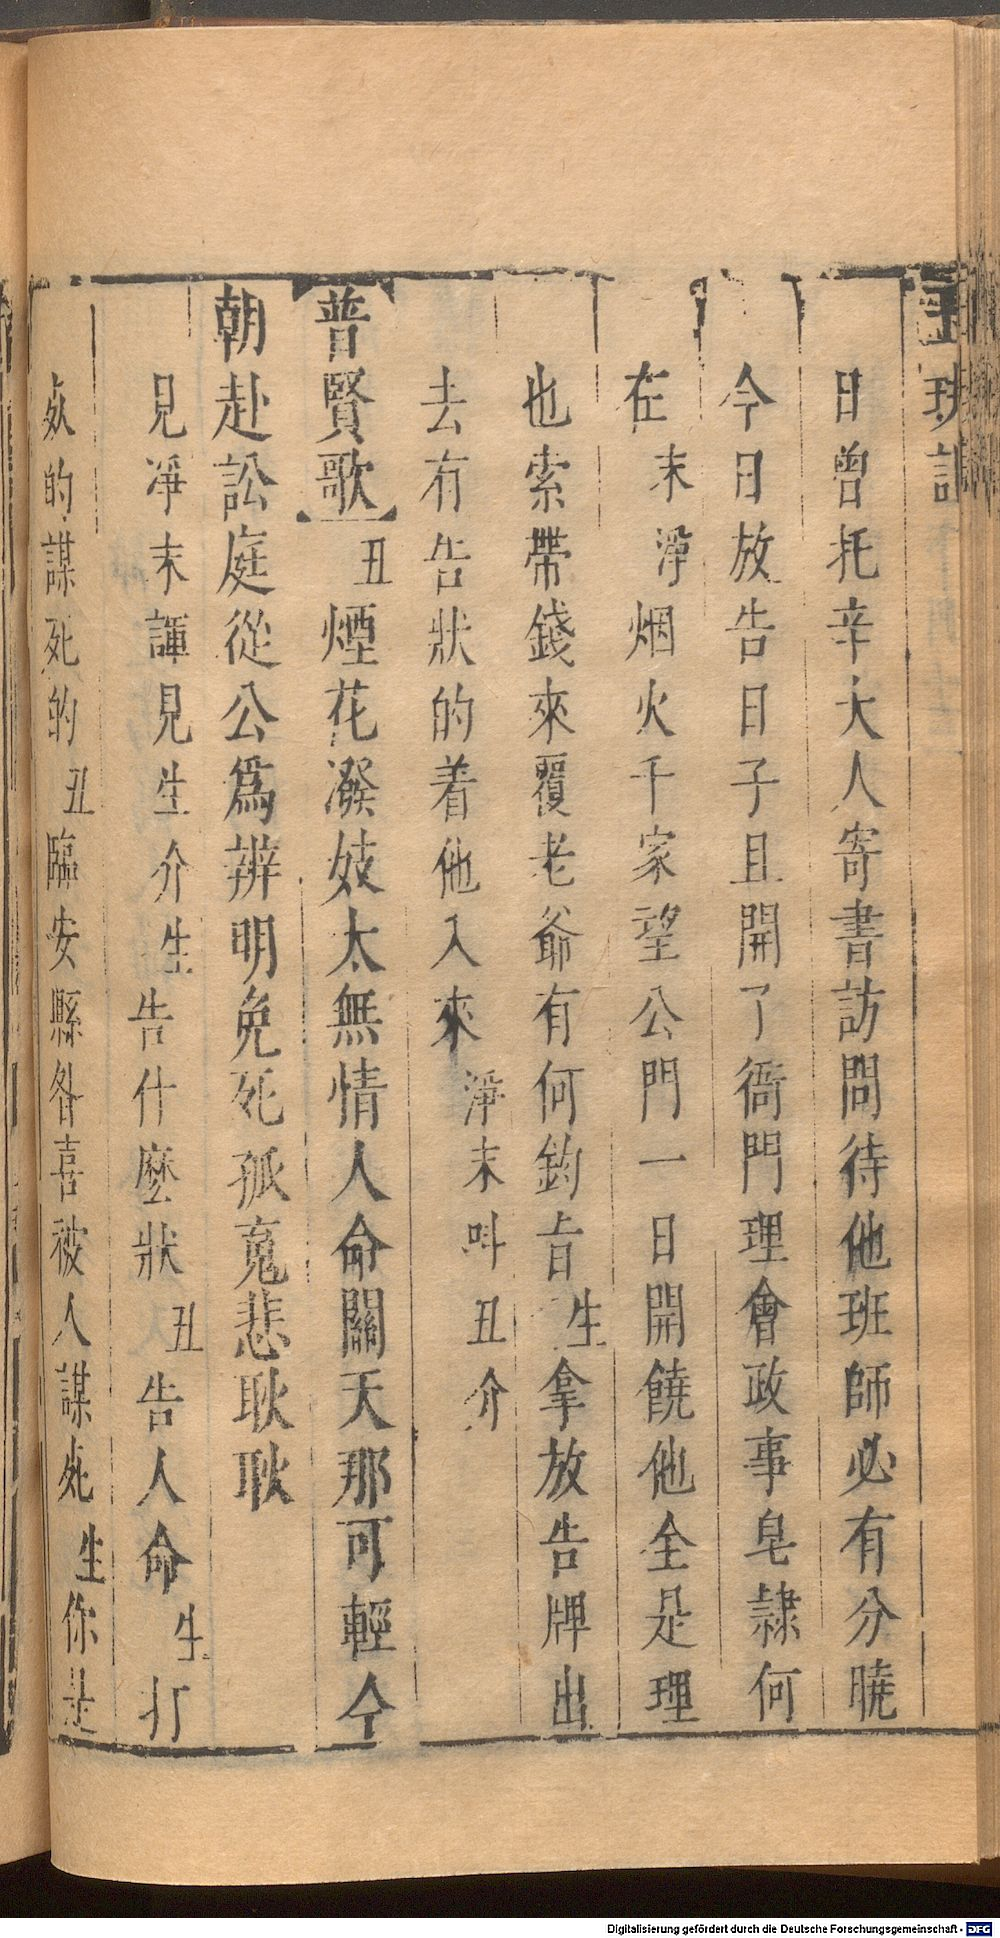 玉玦記
日曾托辛大人寄書訪問待他班師必有分曉
今日放告日子且開了衙門理會政事皂隷何
在末淨烟火千家望公門一日開饒他全是理
也索帶錢來覆老爺有何鈞旨生拿放告牌出
去有告狀的着他入來淨末呌丑介
普賢歌丑煙花潑妓太無情人命關天那可輕今
朝赴訟庭從公爲辨明免死孤寃悲耿耿
見凈末諢見生介生告什麼狀丑告人命生打
死的謀死的丑臨安縣昝喜被人謀死生你是
Digitalisierung gefördert durch die Deutsche Forschungsgemeinschaft - DFG